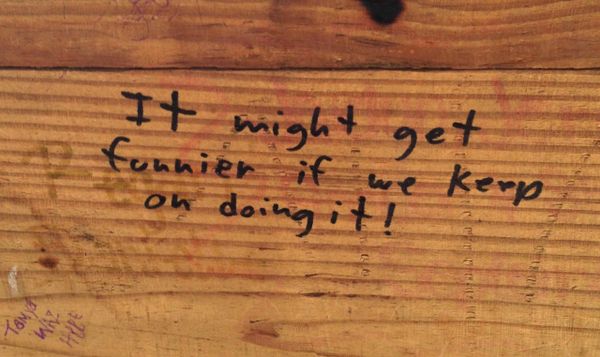 It might get
funnier if we keep
on doing it!
Tanya
Wuz
HERE